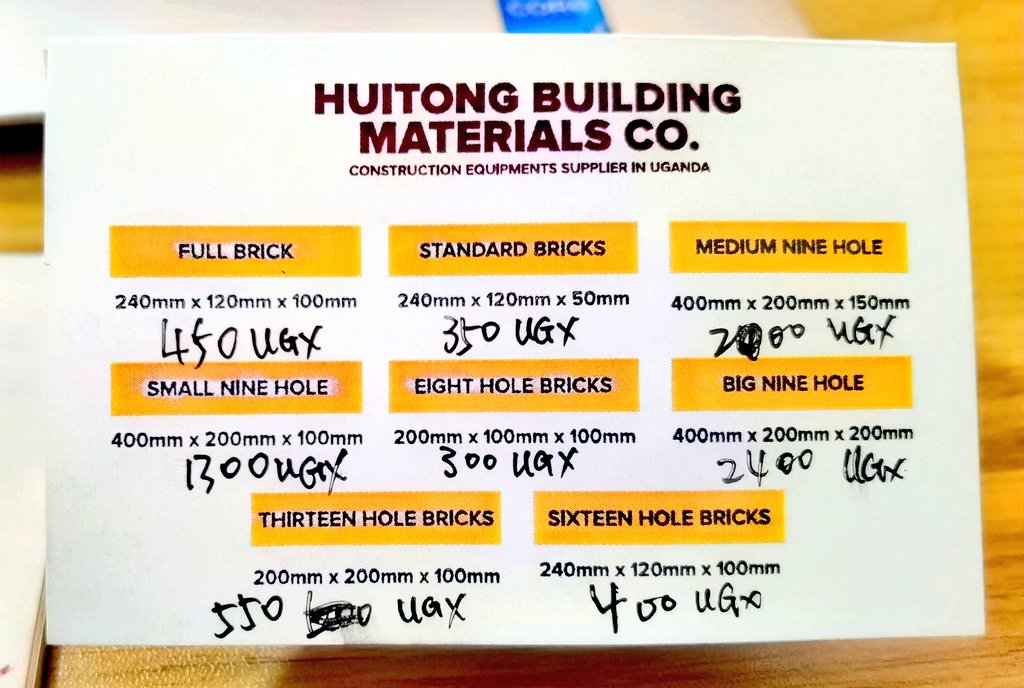 HUITONG BUILDING
MATERIALS CO.
CONSTRUCTION EQUIPMENTS SUPPLIER IN UGANDA
FULL BRICK STANDARD BRICKS MEDIUM NINE HOLE
240mm x 120mm x 100mm 240mm x 120mm x 50mm 400mm x 200mm x 150mm
450 UGX 350 UGX UGX
SMALL NINE HOLE EIGHT HOLE BRICKS BIG NINE HOLE
400mm x 200mm x 100mm 200mm x 100mm x 100mm 400mm x 200mm x 200mm
1300 UGX 300 UGX 2400 UGX
THIRTEEN HOLE BRICKS SIXTEEN HOLE BRICKS
200mm x 200mm x 100mm 240mm x 120mm x 100mm
550 UGX 400 UGX